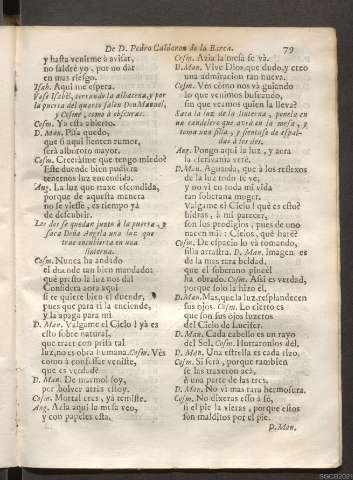 De D. Pedro Calderon de la Barca. 79
y hasta venirme à avisar,
no saldrè yo, por no dar
en mas riesgo.
Isab. Aqui me espera.
Vase Isabel, cerrando la alhacena, y por
la puerta del quarto salen Don Manuel,
y Cosme, como à obscuras.
Cosm. Ya està abierto.
D. Man. Pisa quedo,
que si aqui sienten rumor,
serà alboroto mayor.
Cosm. Creeràsme que tengo miedo?
Este duende bien pudiera
tenernos luz encendida.
Ang. La luz que traxe escondida,
porque de aquesta manera
no se viesse, es tiempo yà
de descubrir.
Los dos se quedan junto à la puerta, y
saca Doña Angela una luz que
trae encubierta en una
linterna.
Cosm. Nunca ha andado
el duende tan bien mandado:
què presto la luz nos diò!
Considera aora aqui
si te quiere bien el duende,
pues que para ti la enciende,
y la apaga para mi.
D. Man. Valgame el Cielo! yà es
esto sobre natural,
que traer con prisa tal
luz, no es obra humana. Cosm. Vès
como à confessar veniste,
que es verdad?
D. Man. De marmol soy,
por bolver atràs estoy.
Cosm. Mortal eres, yà temiste.
Ang. Azia aqui la mesa veo,
y con papeles està.
Cosm. Azia la mesa se và.
D. Man. Vive Dios, que dudo, y creo
una admiracion tan nueva.
Cosm. Vès còmo nos và guiando
lo que venimos buscando,
sin que veamos quien la lleva?
Saca la luz de la linterna, ponela en
un candelero que avrà en la mesa, y
toma una silla, y sientase de espal-
das à los dos.
Ang. Pongo aqui la luz, y aora
la escrivania verè.
D. Man. Aguarda, que à los reflexos
de la luz todo se ve,
y no vi en toda mi vida
tan soberana muger.
Valgame el Cielo! què es esto?
hidras, à mi parecer,
son los prodigios, pues de uno
nacen mil: Cielos, què harè?
Cosm. De espacio lo và tomando,
silla arrastra. D. Man. Imagen es
de la mas rara beldad,
que el soberano pincèl
ha obrado. Cosm. Assi es verdad,
porque solo la hizo èl.
D. Man. Mas, que la luz, resplandecen
sus ojos. Cosm. Lo cierto es
que son sus ojos luzeros
del Cielo de Lucifer.
D. Man. Cada cabello es un rayo
del Sol. Cosm. Hurtaronlos del.
D. Man. Una estrella es cada rizo.
Cosm. Si serà, porque tambien
se las traxeron acà,
ò una parte de las tres.
D. Man. No vì mas rara hermosura.
Cosm. No dixeras esso à fè,
si el pie la vieras, porque estos
son malditos por el pie.
D. Man.